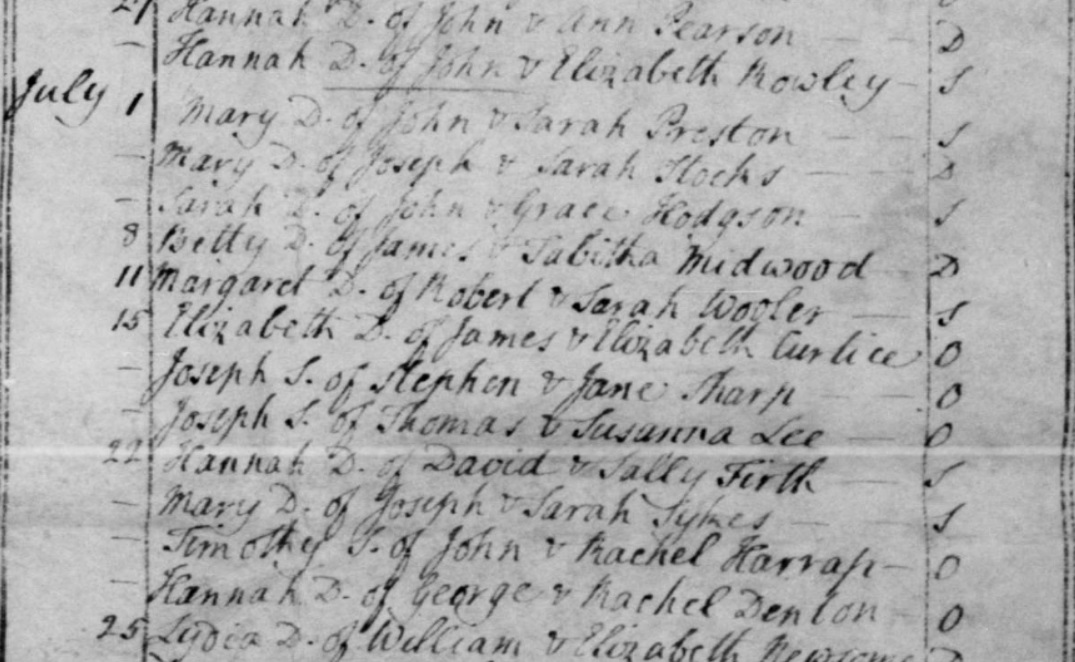 27 Hannah D. of John & Ann Pearson — — D
— Hannah D. of John & Elizabeth Rowley — S
July 1 Mary D. of John & Sarah Preston — — S
— Mary D. of Joseph & Sarah Stocks — — D
— Sarah D. of John & Grace Hodgson — S
8 Betty D. of James & Tabitha Midwood — D
11 Margaret D. of Robert & Sarah Wooler — S
15 Elizabeth D. of James & Elizabeth Curtice O
— Joseph S. of Stephen & Jane Sharp — — O
— Joseph S. of Thomas & Susanna Lee — O
22 Hannah D. of David & Sally Firth — S
— Mary D. of Joseph & Sarah Sykes — — S
— Timothy S. of John & Rachel Harrap — O
— Hannah D. of George & Rachel Denton — O
25 Lydia D. of William & Elizabeth Newsome D